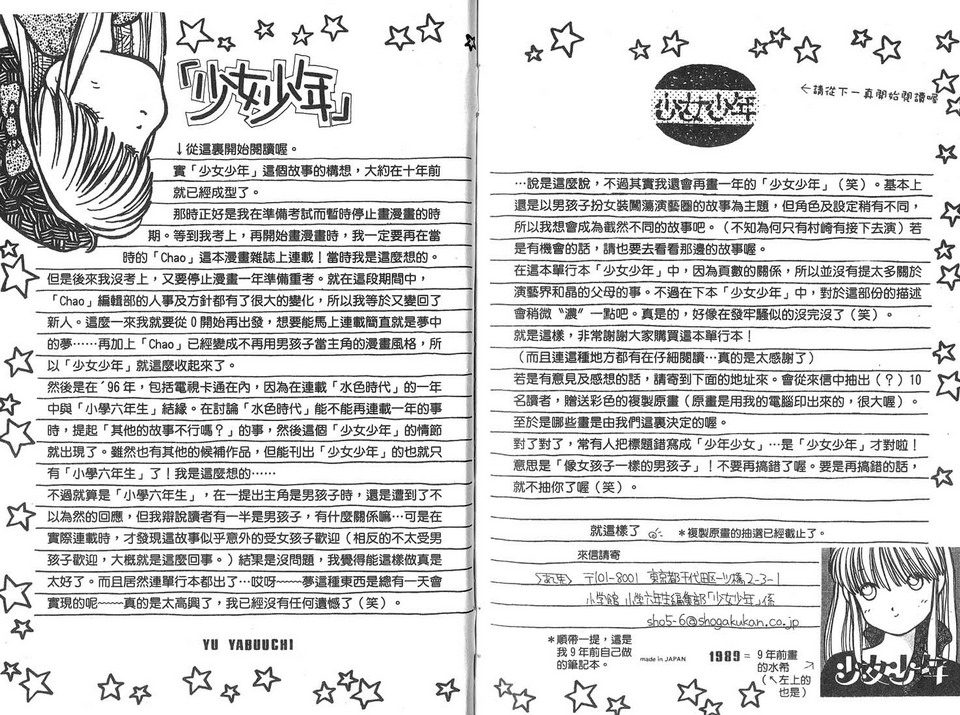 「少女少年」
↓從這裏開始閱讀喔。
實「少女少年」這個故事的構想，大約在十年前
就已經成型了。
那時正好是我在準備考試而暫時停止畫漫畫的時
期。等到我考上，再開始畫漫畫時，我一定要再在當
時的「Chao」這本漫畫雜誌上連載！當時我是這麼想的。
但是後來我沒考上，又要停止漫畫一年準備重考。就在這段期間中，
「Chao」編輯部的人事及方針都有了很大的變化，所以我等於又變回了
新人。這麼一來我就要從0開始再出發，想要能馬上連載簡直就是夢中
的夢……再加上「Chao」已經變成不再用男孩子當主角的漫畫風格，所
以「少女少年」就這麼收起來了。
然後是在´96年，包括電視卡通在內，因為在連載「水色時代」的一年
中與「小學六年生」結緣。在討論「水色時代」能不能再連載一年的事
時，提起「其他的故事不行嗎？」的事，然後這個「少女少年」的情節
就出現了。雖然也有其他的候補作品，但能刊出「少女少年」的也就只
有「小學六年生」了！我是這麼想的……
不過就算是「小學六年生」，在一提出主角是男孩子時，還是遭到了不
以為然的回應，但我辯說讀者有一半是男孩子，有什麼關係嘛…可是在
實際連載時，才發現這故事似乎意外的受女孩子歡迎（相反的不太受男
孩子歡迎，大概就是這麼回事。）結果是沒問題，我覺得能這樣做真是
太好了。而且居然連單行本都出了…哎呀～～夢這種東西是總有一天會
實現的呢～～真的是太高興了，我已經沒有任何遺憾了（笑）。
YU YABUUCHI
少女少年
←請從下一頁開始閱讀喔
…說是這麼說，不過其實我還會再畫一年的「少女少年」（笑）。基本上
還是以男孩子扮女裝闖蕩演藝器的故事為主題，但角色及設定稍有不同，
所以我想會成為截然不同的故事吧。（不知為何只有村崎有接下去演）若
是有機會的話，請也要去看看那邊的故事喔。
在這本單行本「少女少年」中，因為頁數的關係，所以並沒有提太多關於
演藝界和晶的父母的事。不過在下本「少女少年」中，對於這部份的描述
會稍微〝濃〞一點吧。真是的，好像在發牢騷似的沒完沒了（笑）。
就是這樣，非常謝謝大家購買這本單行本！
（而且連這種地方都有在仔細閱讀…真的是太感謝了）
若是有意見及感想的話，請寄到下面的地址來。會從來信中抽出（？）10
名讀者，贈送彩色的複製原畫（原畫是用我的電腦印出來的，很大喔）。
至於是哪些畫是由我們這裏決定的喔。
對了對了，常有人把標題錯寫成「少年少女」…是「少女少年」才對啦！
意思是「像女孩子一樣的男孩子」！不要再搞錯了喔。要是再搞錯的話，
就不抽你了喔（笑）。
就這樣了
＊複製原畫的抽選已經截止了。
來信請寄
〒101-8001 東京都千代田区一ツ橋2-3-1
小学館 小学六年生編集部「少女少年」係
sho5-6@shogakukan.co.jp
＊順帶一提，這是
我9年前自己做
的筆記本。
made in JAPAN
1989＝9年前畫
的水希
（↖左上的
也是）
少女少年